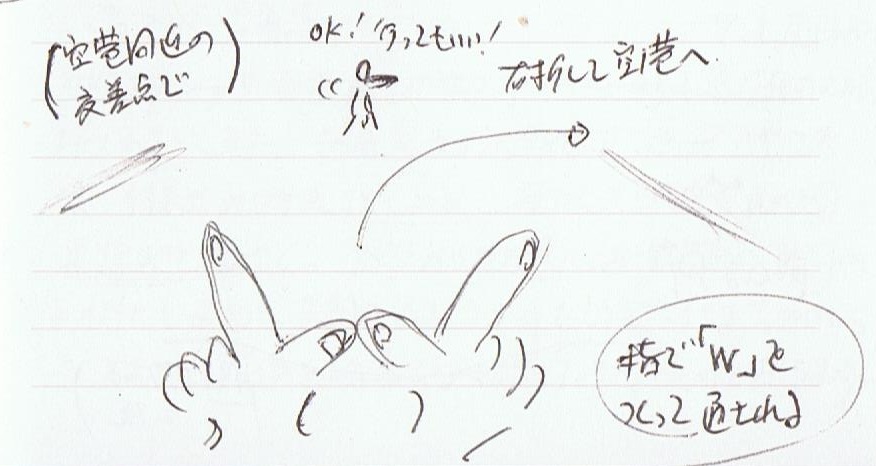 (空港付近の
交差点で)
OK! 行ってもいい!
右折して空港へ
指で「W」を
つくって通せんぼ